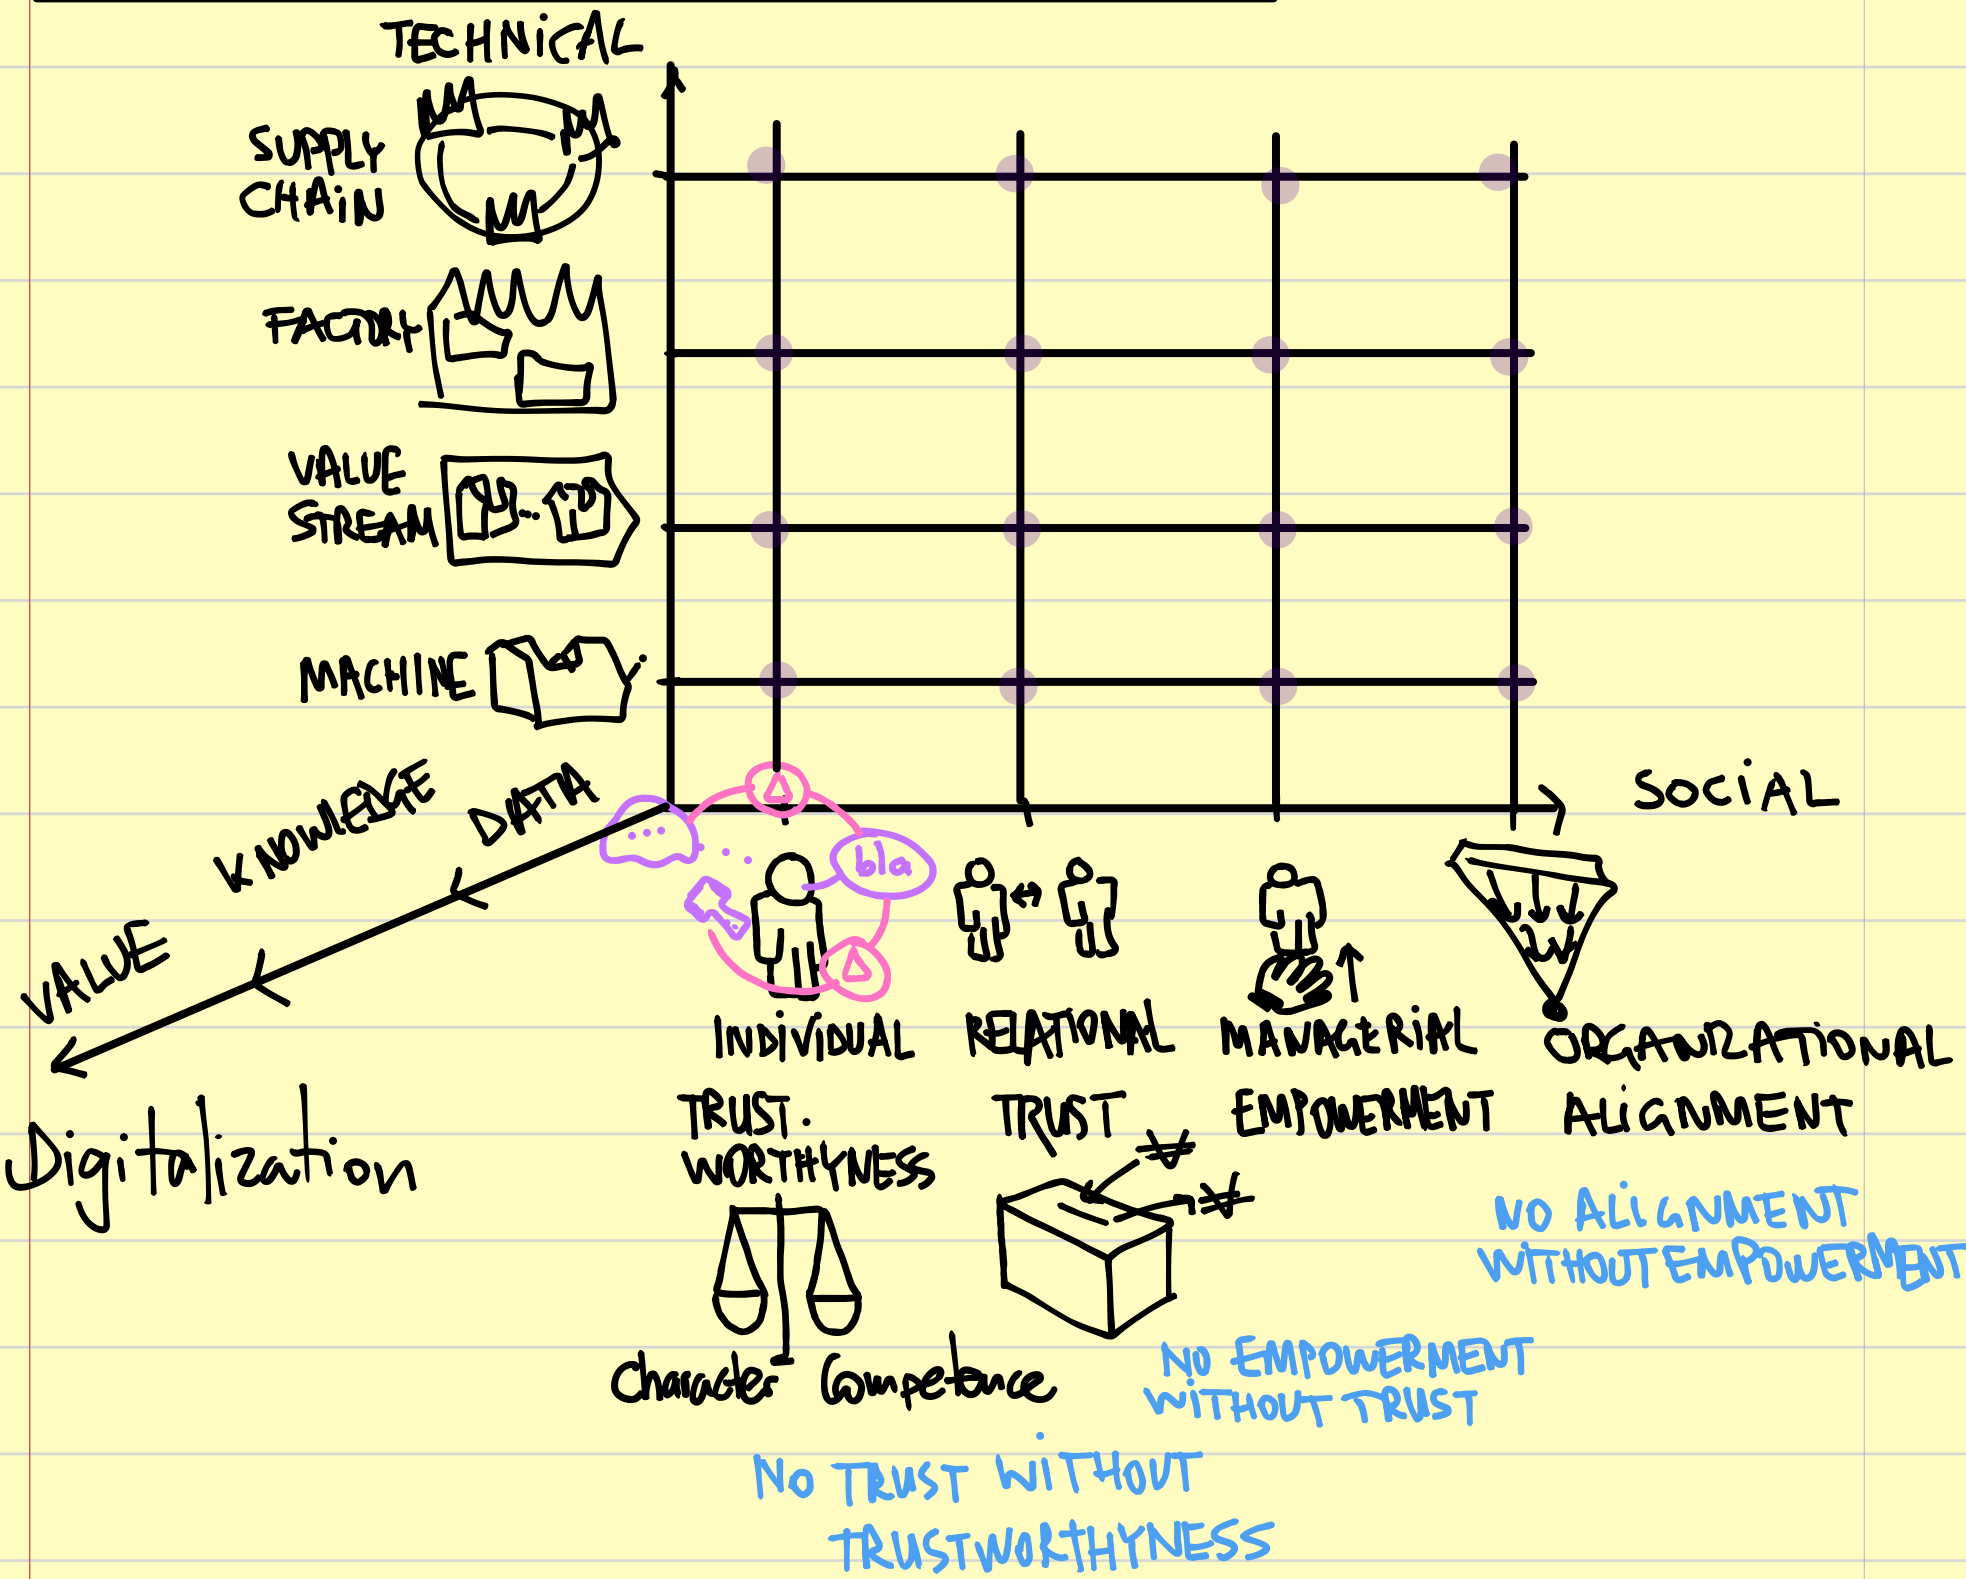 TECHNICAL
SUPPLY
CHAIN
FACTORY
VALUE
STREAM
MACHINE
KNOWLEDGE
DATA
VALUE
Digitalization
SOCIAL
bla
INDIVIDUAL
TRUST.
WORTHYNESS
RELATIONAL
TRUST
MANAGERIAL
EMPOWERMENT
ORGANIZATIONAL
ALIGNMENT
Character Competence
NO ALIGNMENT
WITHOUT EMPOWERMENT
NO EMPOWERMENT
WITHOUT TRUST
NO TRUST WITHOUT
TRUSTWORTHYNESS